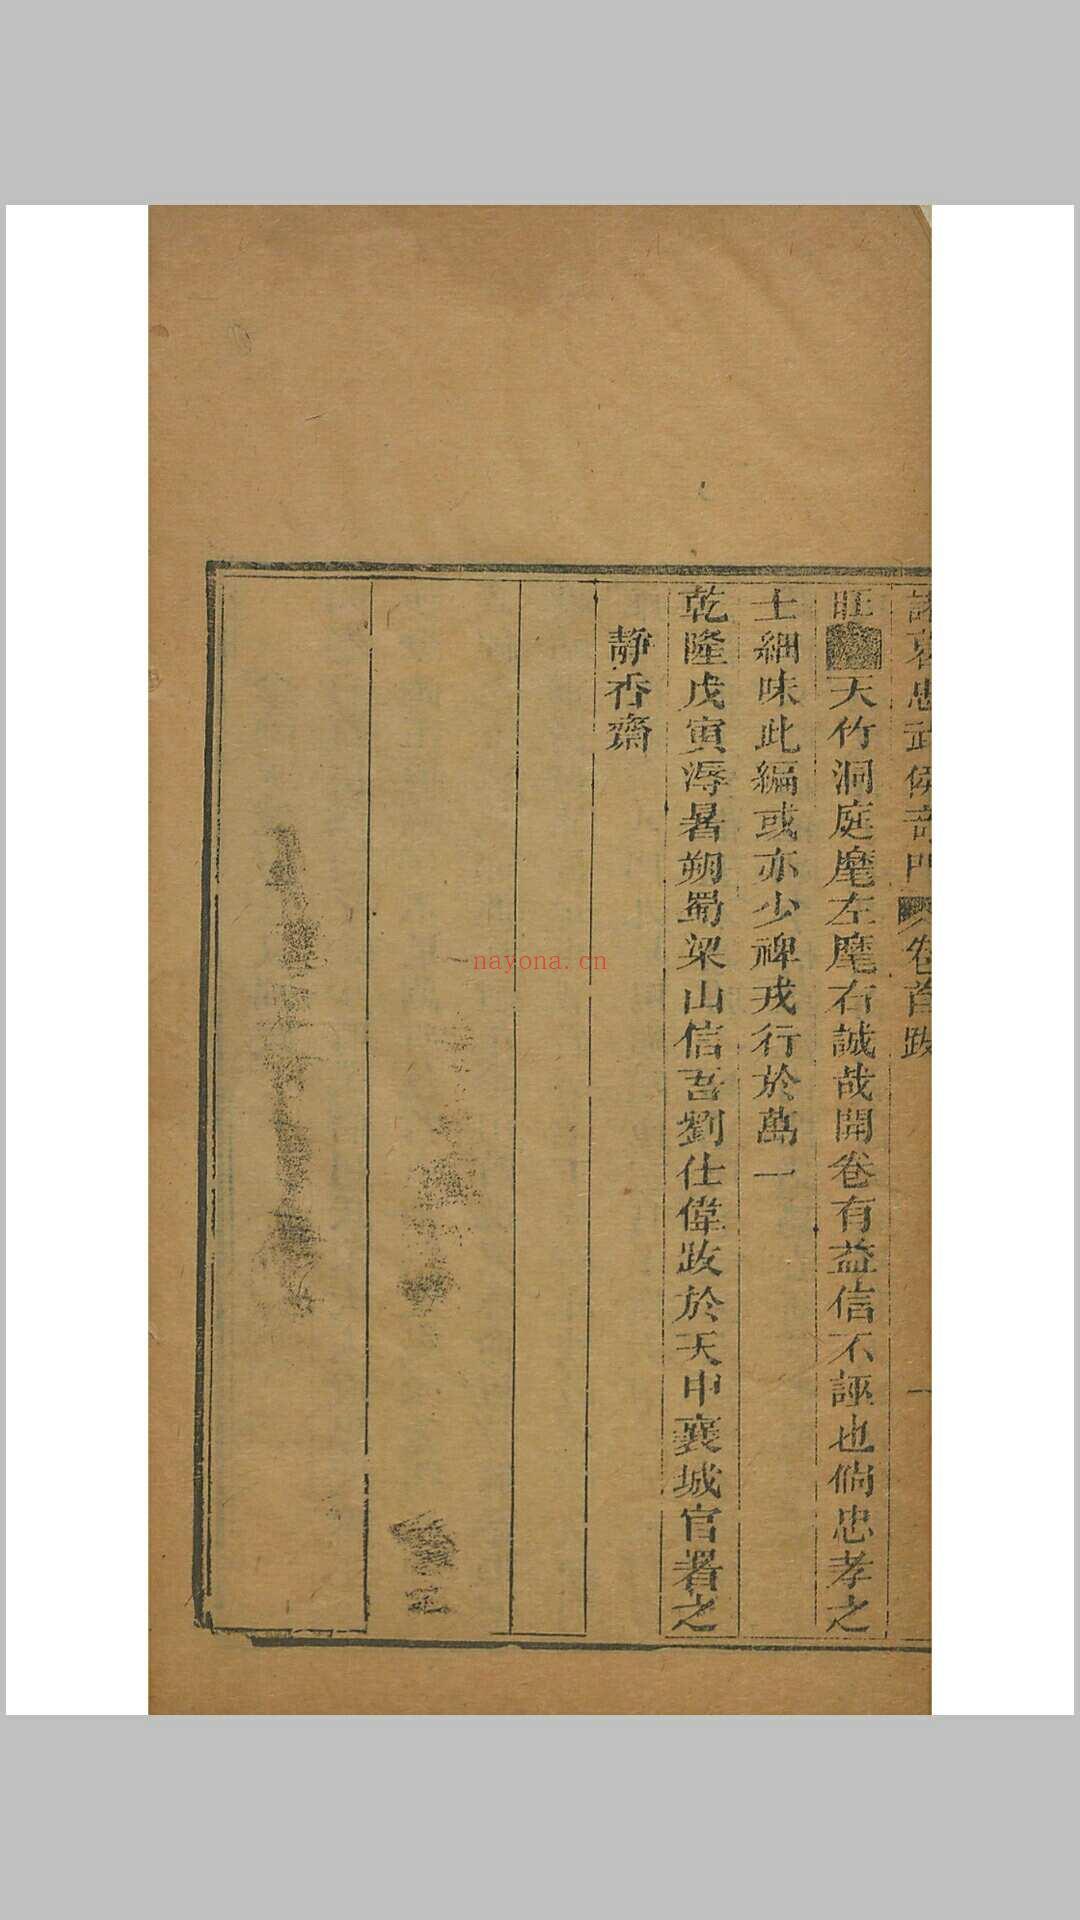 諸葛忠武侯竒門 卷首跋 一
旺 天竹洞庭麾左麾右誠哉開卷有益信不誣也倘忠孝之
士細味此編或亦少裨戎行於萬一
乾隆戊寅溽暑朔蜀梁山信吾劉仕偉跋於天中襄城官署之
靜香齋
nayona.cn